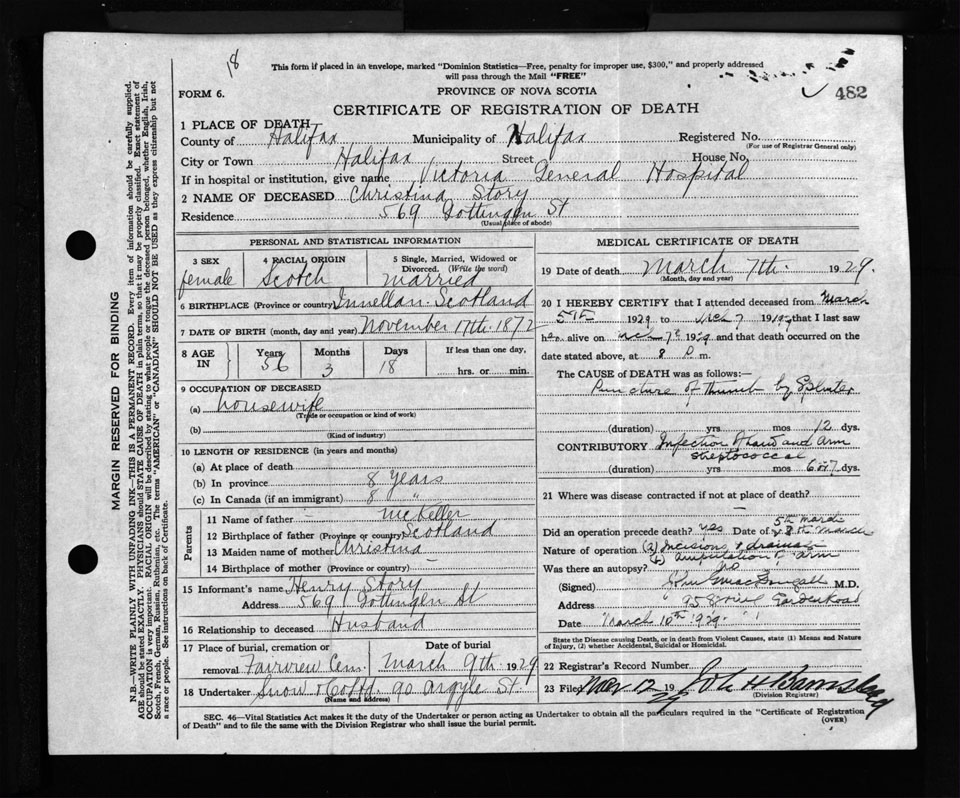 18
This form if placed in an envelope, marked "Dominion Statistics—Free, penalty for improper use, $300," and properly addressed
will pass through the Mail "FREE"
FORM 6.
PROVINCE OF NOVA SCOTIA
482
CERTIFICATE OF REGISTRATION OF DEATH
1 PLACE OF DEATH
County of Halifax Municipality of Halifax Registered No.
(For use of Registrar General only)
City or Town Halifax Street House No.
If in hospital or institution, give name Victoria General Hospital
2 NAME OF DECEASED Christina Story
Residence 569 Gottingen St
(Usual place of abode)
PERSONAL AND STATISTICAL INFORMATION
3 SEX female
4 RACIAL ORIGIN Scotch
5 Single, Married, Widowed or Divorced. (Write the word) Married
6 BIRTHPLACE (Province or country) Innellan. Scotland
7 DATE OF BIRTH (month, day and year) November 17th. 1872
8 AGE IN Years 56 Months 3 Days 18 If less than one day, hrs. or min.
9 OCCUPATION OF DECEASED
(a) housewife
(Trade or occupation or kind of work)
(b)
(Kind of industry)
10 LENGTH OF RESIDENCE (in years and months)
(a) At place of death
(b) In province 8 years
(c) In Canada (if an immigrant) 8 "
Parents
11 Name of father McKeller
12 Birthplace of father (Province or country) Scotland
13 Maiden name of mother Christina —
14 Birthplace of mother (Province or country)
15 Informant's name Henry Story
Address 569 Gottingen St
16 Relationship to deceased Husband
17 Place of burial, cremation or removal Fairview Cem. Date of burial March 9th. 1929
18 Undertaker Snow & Co Ltd. 90 Argyle St.
(Name and address)
MEDICAL CERTIFICATE OF DEATH
19 Date of death March 7th. 1929.
(Month, day and year)
20 I HEREBY CERTIFY that I attended deceased from March
5th 1929 to Mch 7 1929 that I last saw
her alive on Mch 7th 1929 and that death occurred on the
date stated above, at 8 P. m.
The CAUSE of DEATH was as follows:—
Puncture of thumb by Splinter
(duration) yrs mos 12 dys.
CONTRIBUTORY Infection of hand and arm
streptococcal
(duration) yrs mos 6 or 7 dys.
21 Where was disease contracted if not at place of death?
—
Did an operation precede death? yes Date of 5th March
Nature of operation (a) Incisions & drainage
(b) Amputation of arm
Was there an autopsy? no
(Signed) MacDougall M.D.
Address 95 Road
Date March 10th 1929.
State the Disease causing Death, or in death from Violent Causes, state (1) Means and Nature
of Injury, (2) whether Accidental, Suicidal or Homicidal.
22 Registrar's Record Number
23 Filed Mar 12 1929 John H Barnstead
(Division Registrar)
SEC. 46—Vital Statistics Act makes it the duty of the Undertaker or person acting as Undertaker to obtain all the particulars required in the "Certificate of Registration
of Death" and to file the same with the Division Registrar who shall issue the burial permit.
(OVER)
MARGIN RESERVED FOR BINDING
N.B.—WRITE PLAINLY WITH UNFADING INK—THIS IS A PERMANENT RECORD. Every item of information should be carefully supplied.
AGE should be stated EXACTLY. PHYSICIANS should STATE CAUSE OF DEATH in plain terms, so that it may be properly classified. Exact statement of
OCCUPATION is very important. RACIAL ORIGIN will be described by stating to what people or tongue the deceased person belonged, whether English, Irish,
Scotch, French, German, Russian, Ruthenian, etc. The terms "AMERICAN" or "CANADIAN" SHOULD NOT BE USED as they express citizenship but not
a race or people. See instructions on back of Certificate.